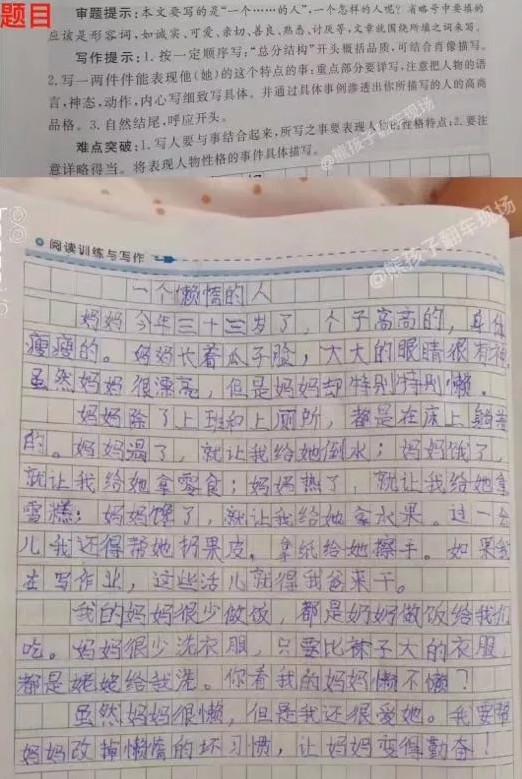 题目
审题提示:本文要写的是“一个……的人”,一个怎样的人呢?省略号中要填的
应该是形容词,如诚实、可爱、亲切、善良、熟悉、讨厌等,文章就围绕所填之词来写。
写作提示:1.按一定顺序写:“总分结构”开头概括品质,可结合肖像描写。
2.写一两件件能表现他(她)的这个特点的事:重点部分要详写,注意把人物的语
言,神态,动作,内心写细致写具体。并通过具体事例渗透出你所描写的人的高高
品格。3.自然结尾,呼应开头。
难点突破:1.写人要与事结合起来,所写之事要表现人物的性格特点;2.要注
意详略得当。将表现人物性格的事件具体描写。
@熊孩子翻车现场
阅读训练与写作
@熊孩子翻车现场
一个懒惰的人
妈妈今年三十三岁了,个子高高的,身体
瘦瘦的。妈妈长着瓜子脸,大大的眼睛很有神,
虽然妈妈很漂亮,但是妈妈却特别特别懒。
妈妈除了上班和上厕所,都是在床上躺着
的。妈妈渴了,就让我给她倒水;妈妈饿了,
就让我给她拿零食;妈妈热了,就让我给她拿
雪糕;妈妈馋了,就让我给她拿水果。过一会
儿我还得帮她扔果皮,拿纸给她擦手。如果我
在写作业,这些活儿就得我爸来干。
我的妈妈很少做饭,都是奶奶做饭给我们
吃。妈妈很少洗衣服,只要比袜子大的衣服,
都是姥姥给我洗。你看我的妈妈懒不懒?
虽然妈妈很懒,但是我还很爱她。我要帮
妈妈改掉懒惰的坏习惯,让妈妈变得勤奋!